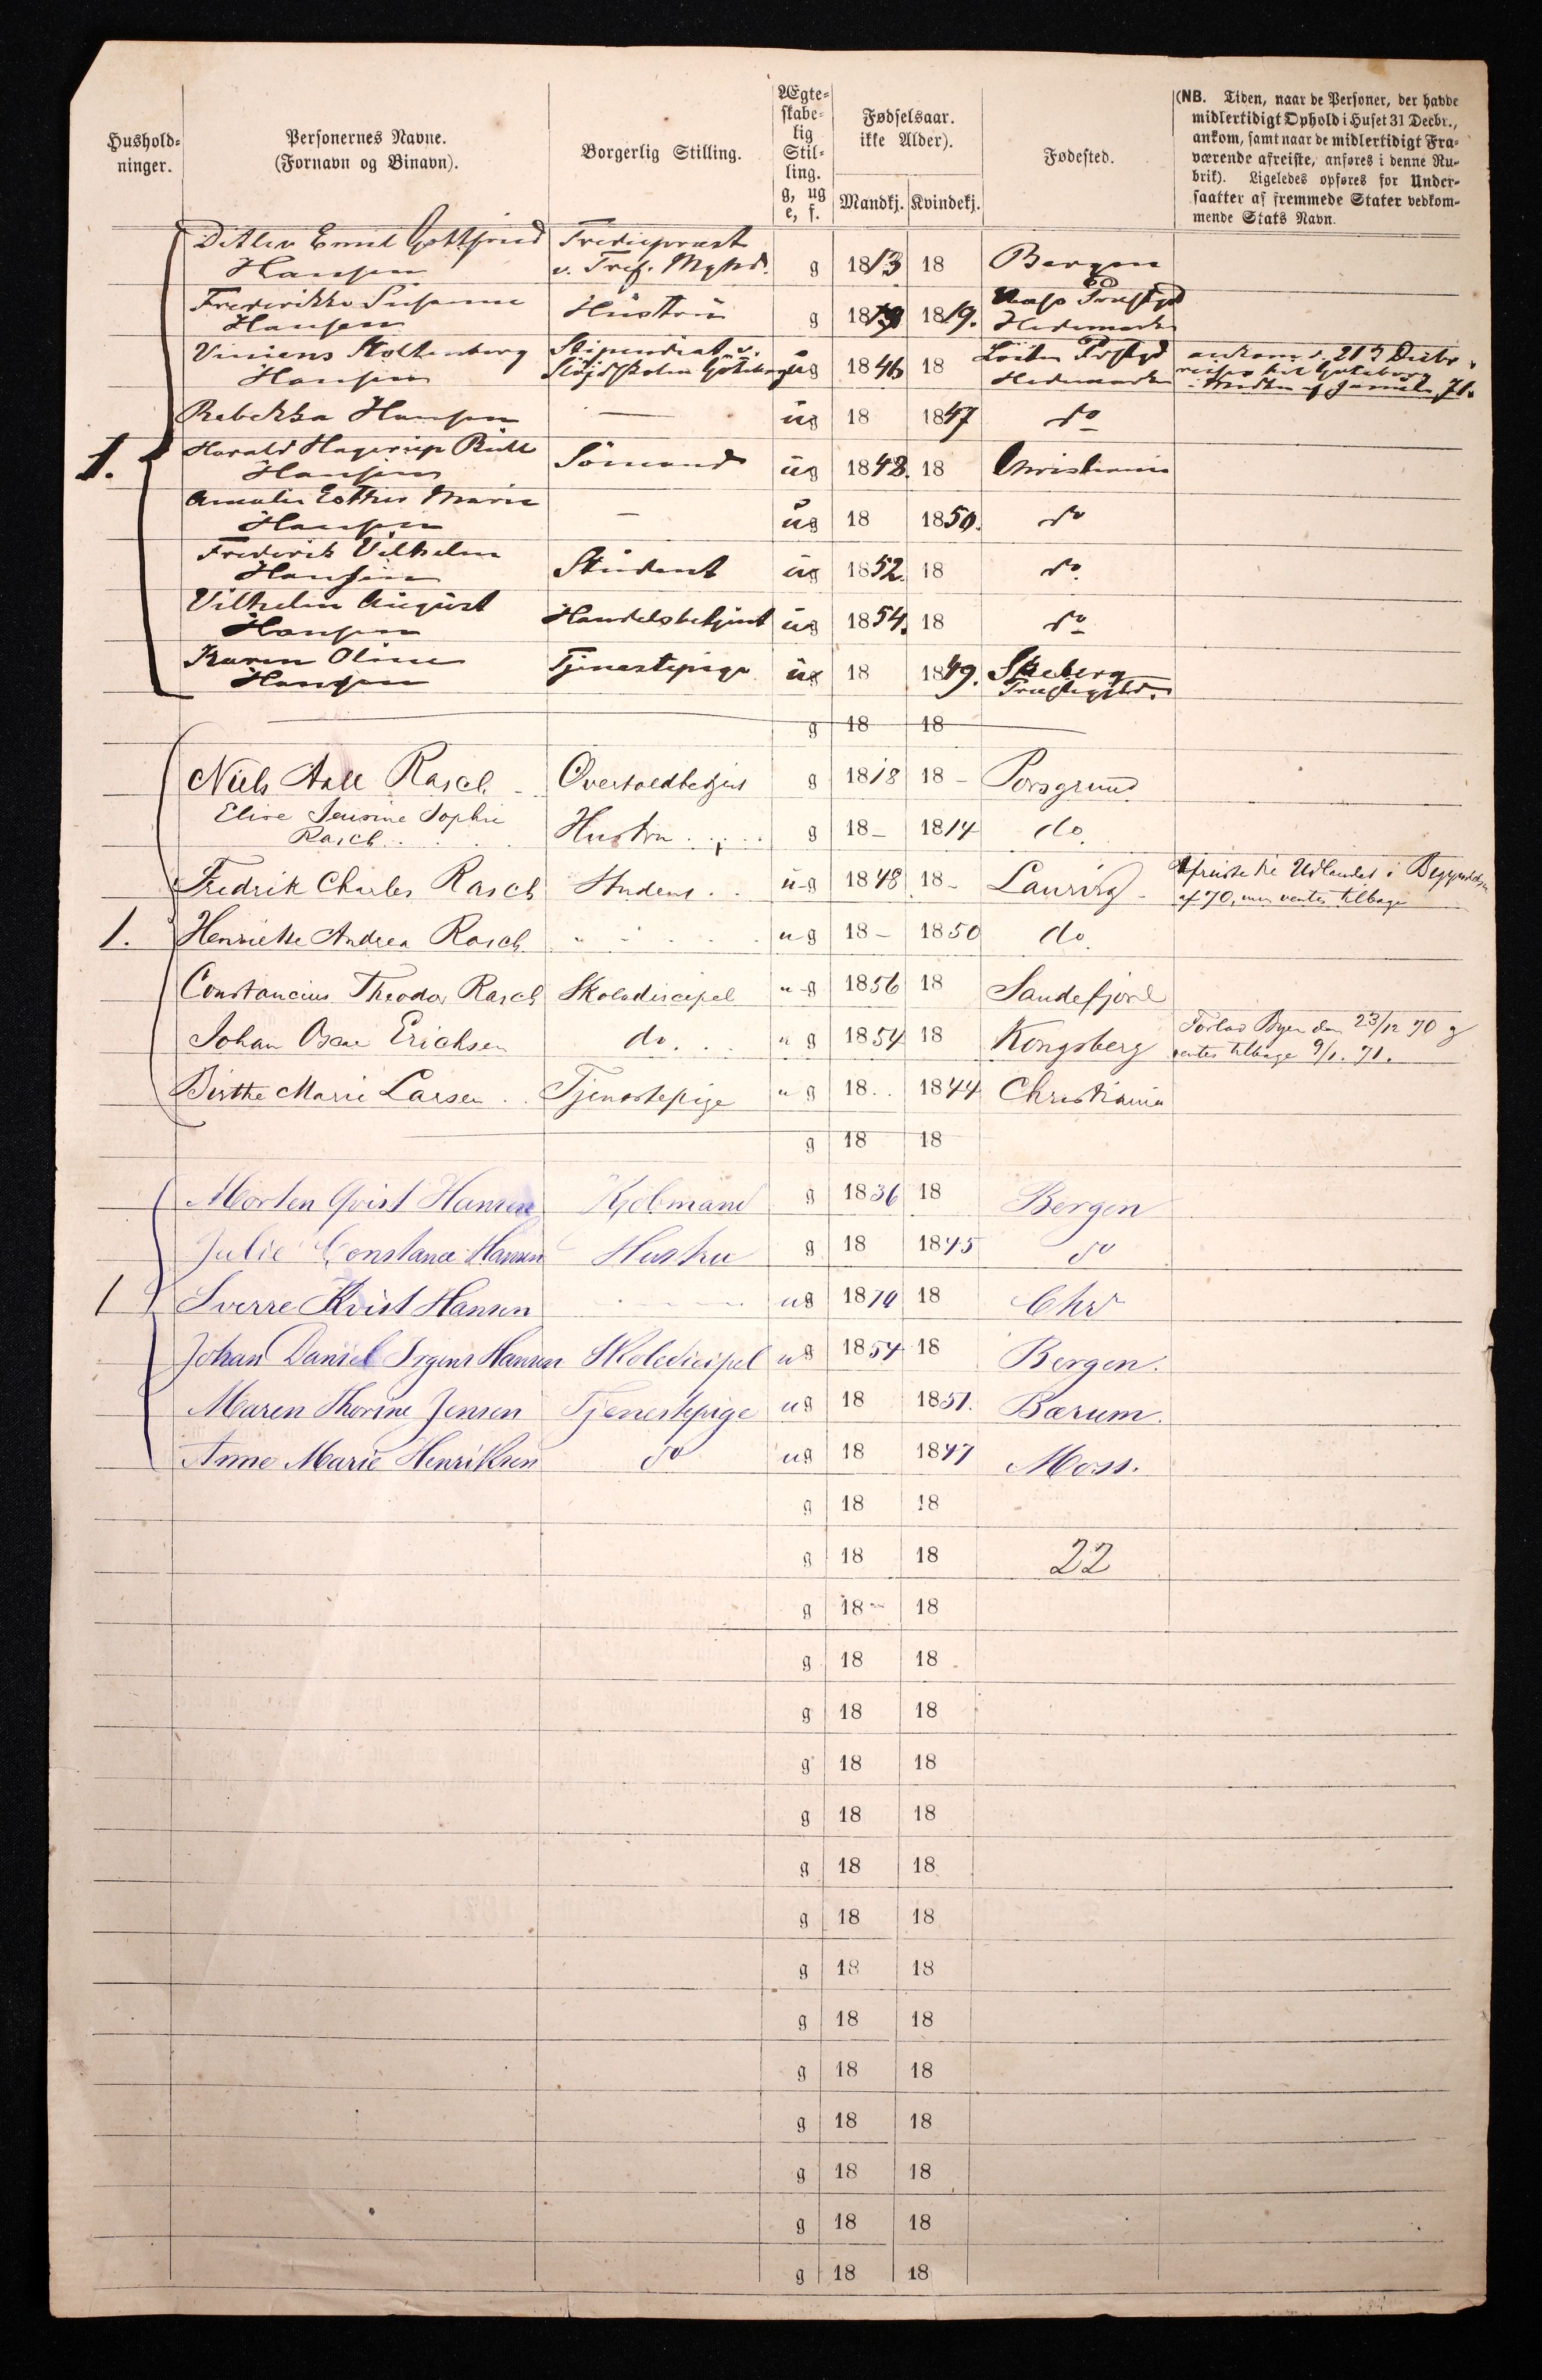 Hushold-
ninger.
Personernes Navne.
(Fornavn og Binavn).
Borgerlig Stilling.
Ægte-
skabe-
lig
Stil-
ling.
g, ug
e, f.
Fødselsaar.
ikke Alder).
Mandkj. Kvindekj.
Fødested.
(NB. Tiden, naar de Personer, der havde
midlertidigt Ophold i Huset 31 Decbr.,
ankom, samt naar de midlertidigt Fra-
værende afreiste, anføres i denne Ru-
brik). Ligeledes opføres for Under-
saatter af fremmede Stater vedkom-
mende Stats Navn.
Ditlev Emil Gottfried
Hansen
g 1813 18 Bergen
Frederikke Susanne
Hansen
Hustru g 18 1819.
Hedemarken
Stoltenberg
Hansen
Stipendiat v.
ug 1846 18
Hedemarken
ankom d. 21 Decbr
Rebekka Hansen — ug 18 1847 do
1.
Harald Hagerup
Hansen
Sömand ug 1848. 18 Christiania
Amalie Esther Marie
Hansen
— ug 18 1850. do
Frederik Vilhelm
Hansen
Student ug 1852. 18 do
Vilhelm August
Hansen
Handelsbetjent ug 1854. 18 do
Karen Oline
Hansen
Tjenestepige ug 18 1849. Skeberg
g 18 18
Niels Aall Rasch Overtoldbetjent g 1818 18 – Porsgrund
Elise Jensine Sophie
Rasch
Hustru g 18 – 1814 do
Fredrik Charles Rasch Student ug 1848 18 – Laurvig
Afreiste til Udlandet i Begyndelsen
af 70, men ventes tilbage
1. Henriette Andrea Rasch ug 18 – 1850 do
Constancius Theodor Rasch Skolediscipel ug 1856 18 Sandefjord
Johan Oscar Erichsen do. ug 1854 18 Kongsberg
Forlod Byen den 23/12 70 g
ventes tilbage 9/1. 71.
Birthe Marie Larsen Tjenestepige ug 18 1844 Christiania
g 18 18
Morten Qvist Hansen Kjøbmand g 1836 18 Bergen
Julie Constance Hansen Hustru g 18 1845 do
1 Sverre Kvist Hansen ug 1870 18 Chr
Johan Daniel Irgens Hansen Skolediscipel ug 1854 18 Bergen.
Maren Thorine Jensen Tjenestepige ug 18 1851. Bærum.
Anne Marie Henriksen do ug 18 1847 Moss.
g 18 18
g 18 18 22
g 18 18
g 18 18
g 18 18
g 18 18
g 18 18
g 18 18
g 18 18
g 18 18
g 18 18
g 18 18
g 18 18
g 18 18
g 18 18
g 18 18